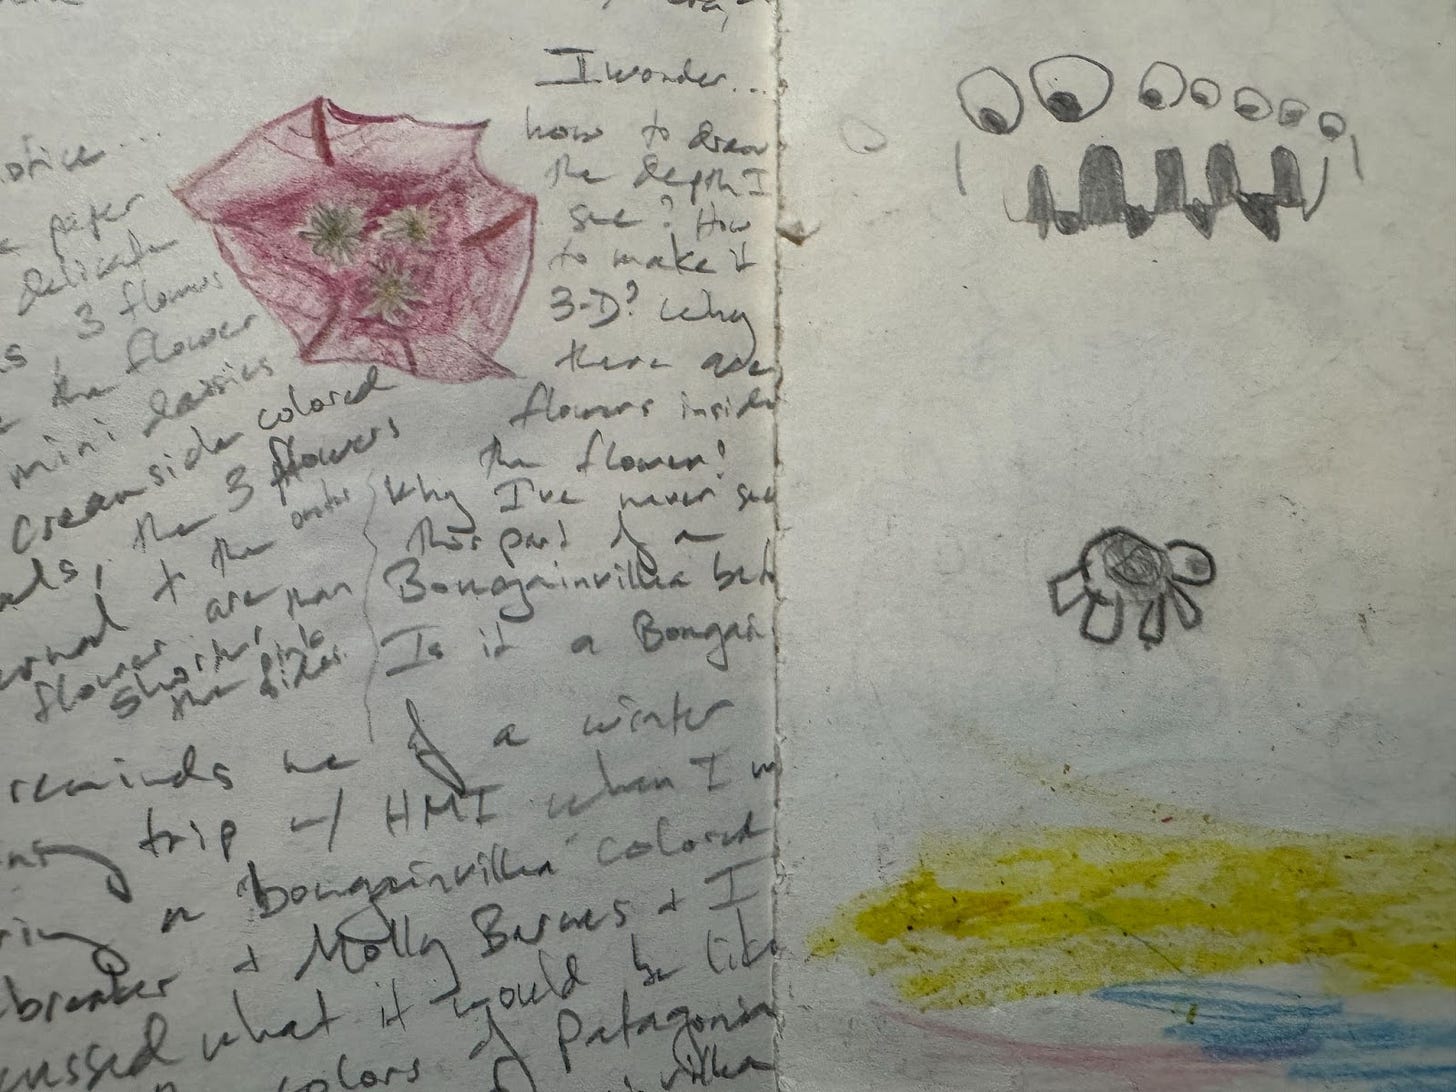 I wonder...
how to draw
the depth I
see? How
to make it
3-D? Why
there are
flowers inside
the flower?
Why I've never see
this part of a
Bougainvillea befo
Is it a Bougain
otice...
paper
delicate
s, 3 flowers
the flower
mini daisies
cream side colored
the 3 flowers
+ the
flower are more
shorter
the sides.
reminds me of a winter
trip w/ HMI when I w
ring a bougainvillea colored
breaker + Molly Barnes + I
ussed what it would be like
colors of Patagonia
villea